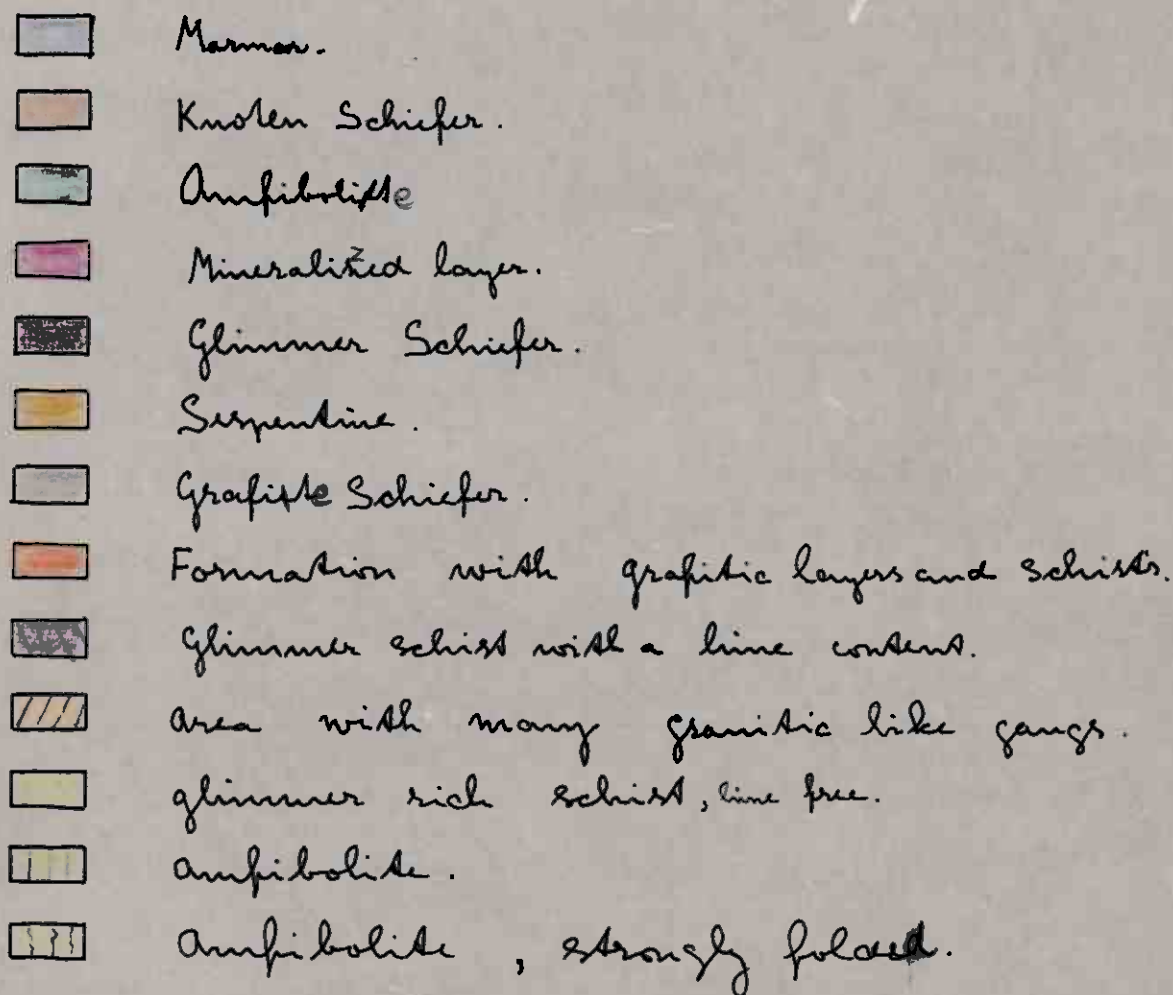 Marmor.
Knoten Schiefer.
Amfibolitte
Mineralized layer.
Glimmer Schiefer.
Serpentine.
Grafitte Schiefer.
Formation with grafitic layers and schists.
Glimmer schist with a lime content.
area with many granitic like gangs.
glimmer rich schist, lime free.
amfibolite.
Amfibolite, strongly folded.